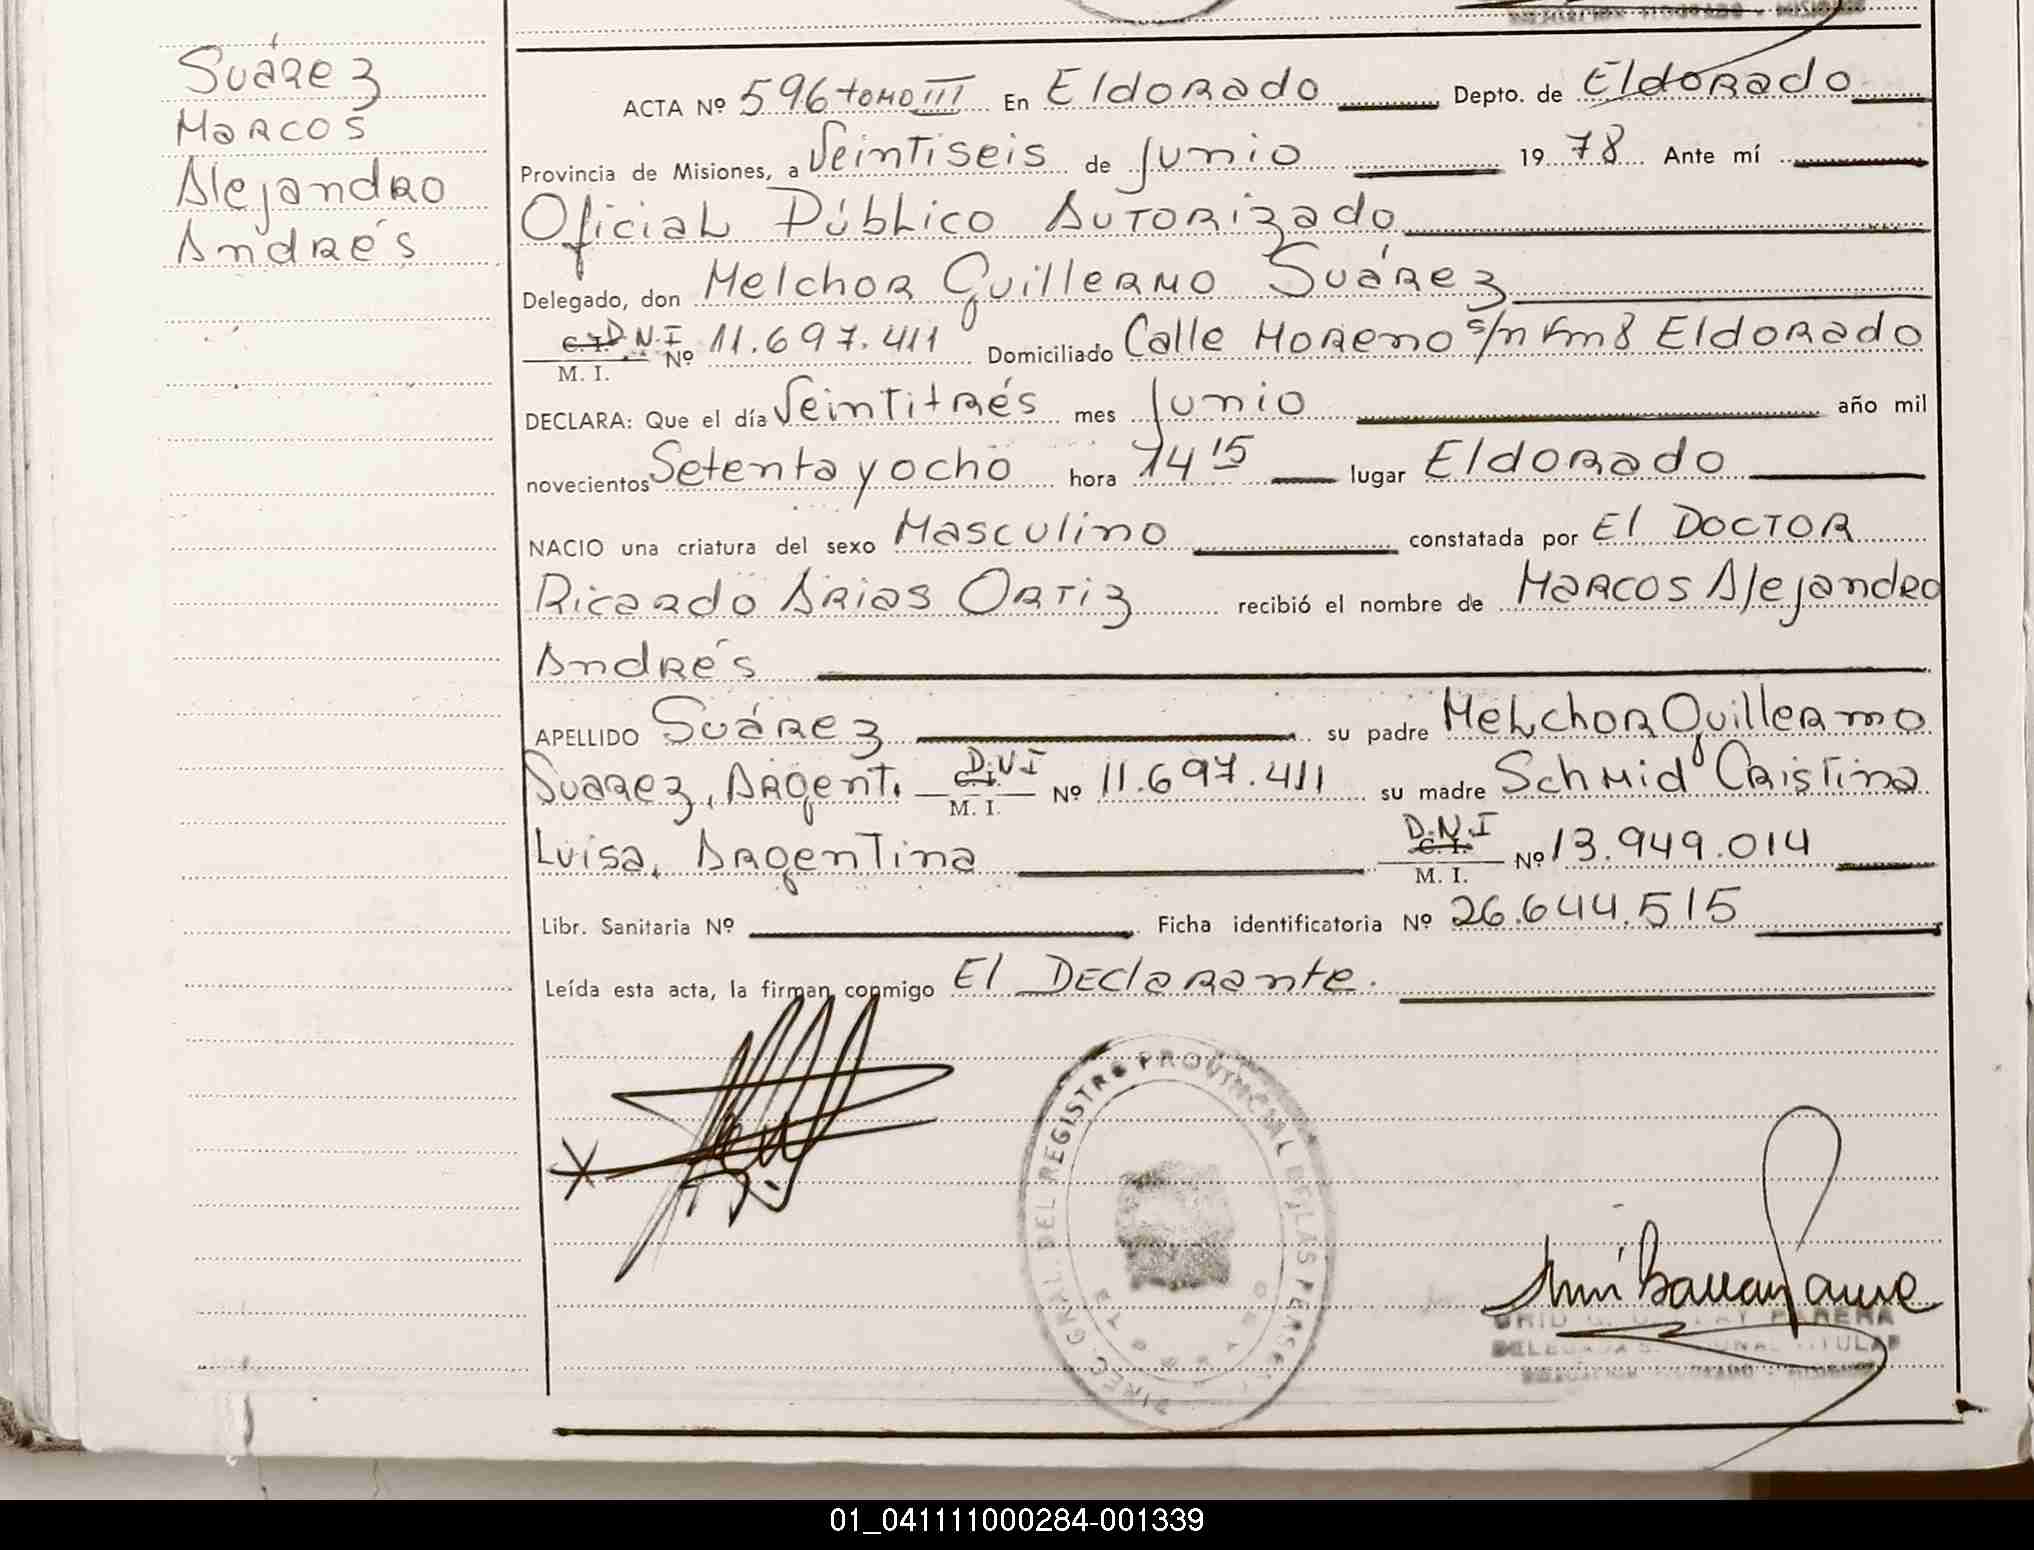 Suárez
Marcos
Alejandro
Andrés
ACTA Nº 596 tomo III En Eldorado Depto. de Eldorado
Provincia de Misiones, a Veintiseis de Junio 19 78 Ante mí
Oficial Público Autorizado
Delegado, don Melchor Guillermo Suárez
C. I. D.N.I M. I. Nº 11.697.411 Domiciliado Calle Moreno s/n Km 8 Eldorado
DECLARA: Que el día Veintitrés mes Junio año mil
novecientos Setenta y ocho hora 14 15 lugar Eldorado
NACIO una criatura del sexo Masculino constatada por El Doctor
Ricardo Arias Ortiz recibió el nombre de Marcos Alejandro
Andrés
APELLIDO Suárez su padre Melchor Guillermo
Suarez, Argent. C.I. D.N.I M. I. Nº 11.697.411 su madre Schmid Cristina
Luisa, Argentina C. I. D.N.I M. I. Nº 13.949.014
Libr. Sanitaria Nº Ficha identificatoria Nº 26.644.515
Leída esta acta, la firman conmigo El Declarante.
DIREC. GRAL. DEL REGISTRO PROVINCIAL DE LAS PERSONAS
PARERA
TITULAR
01_041111000284-001339